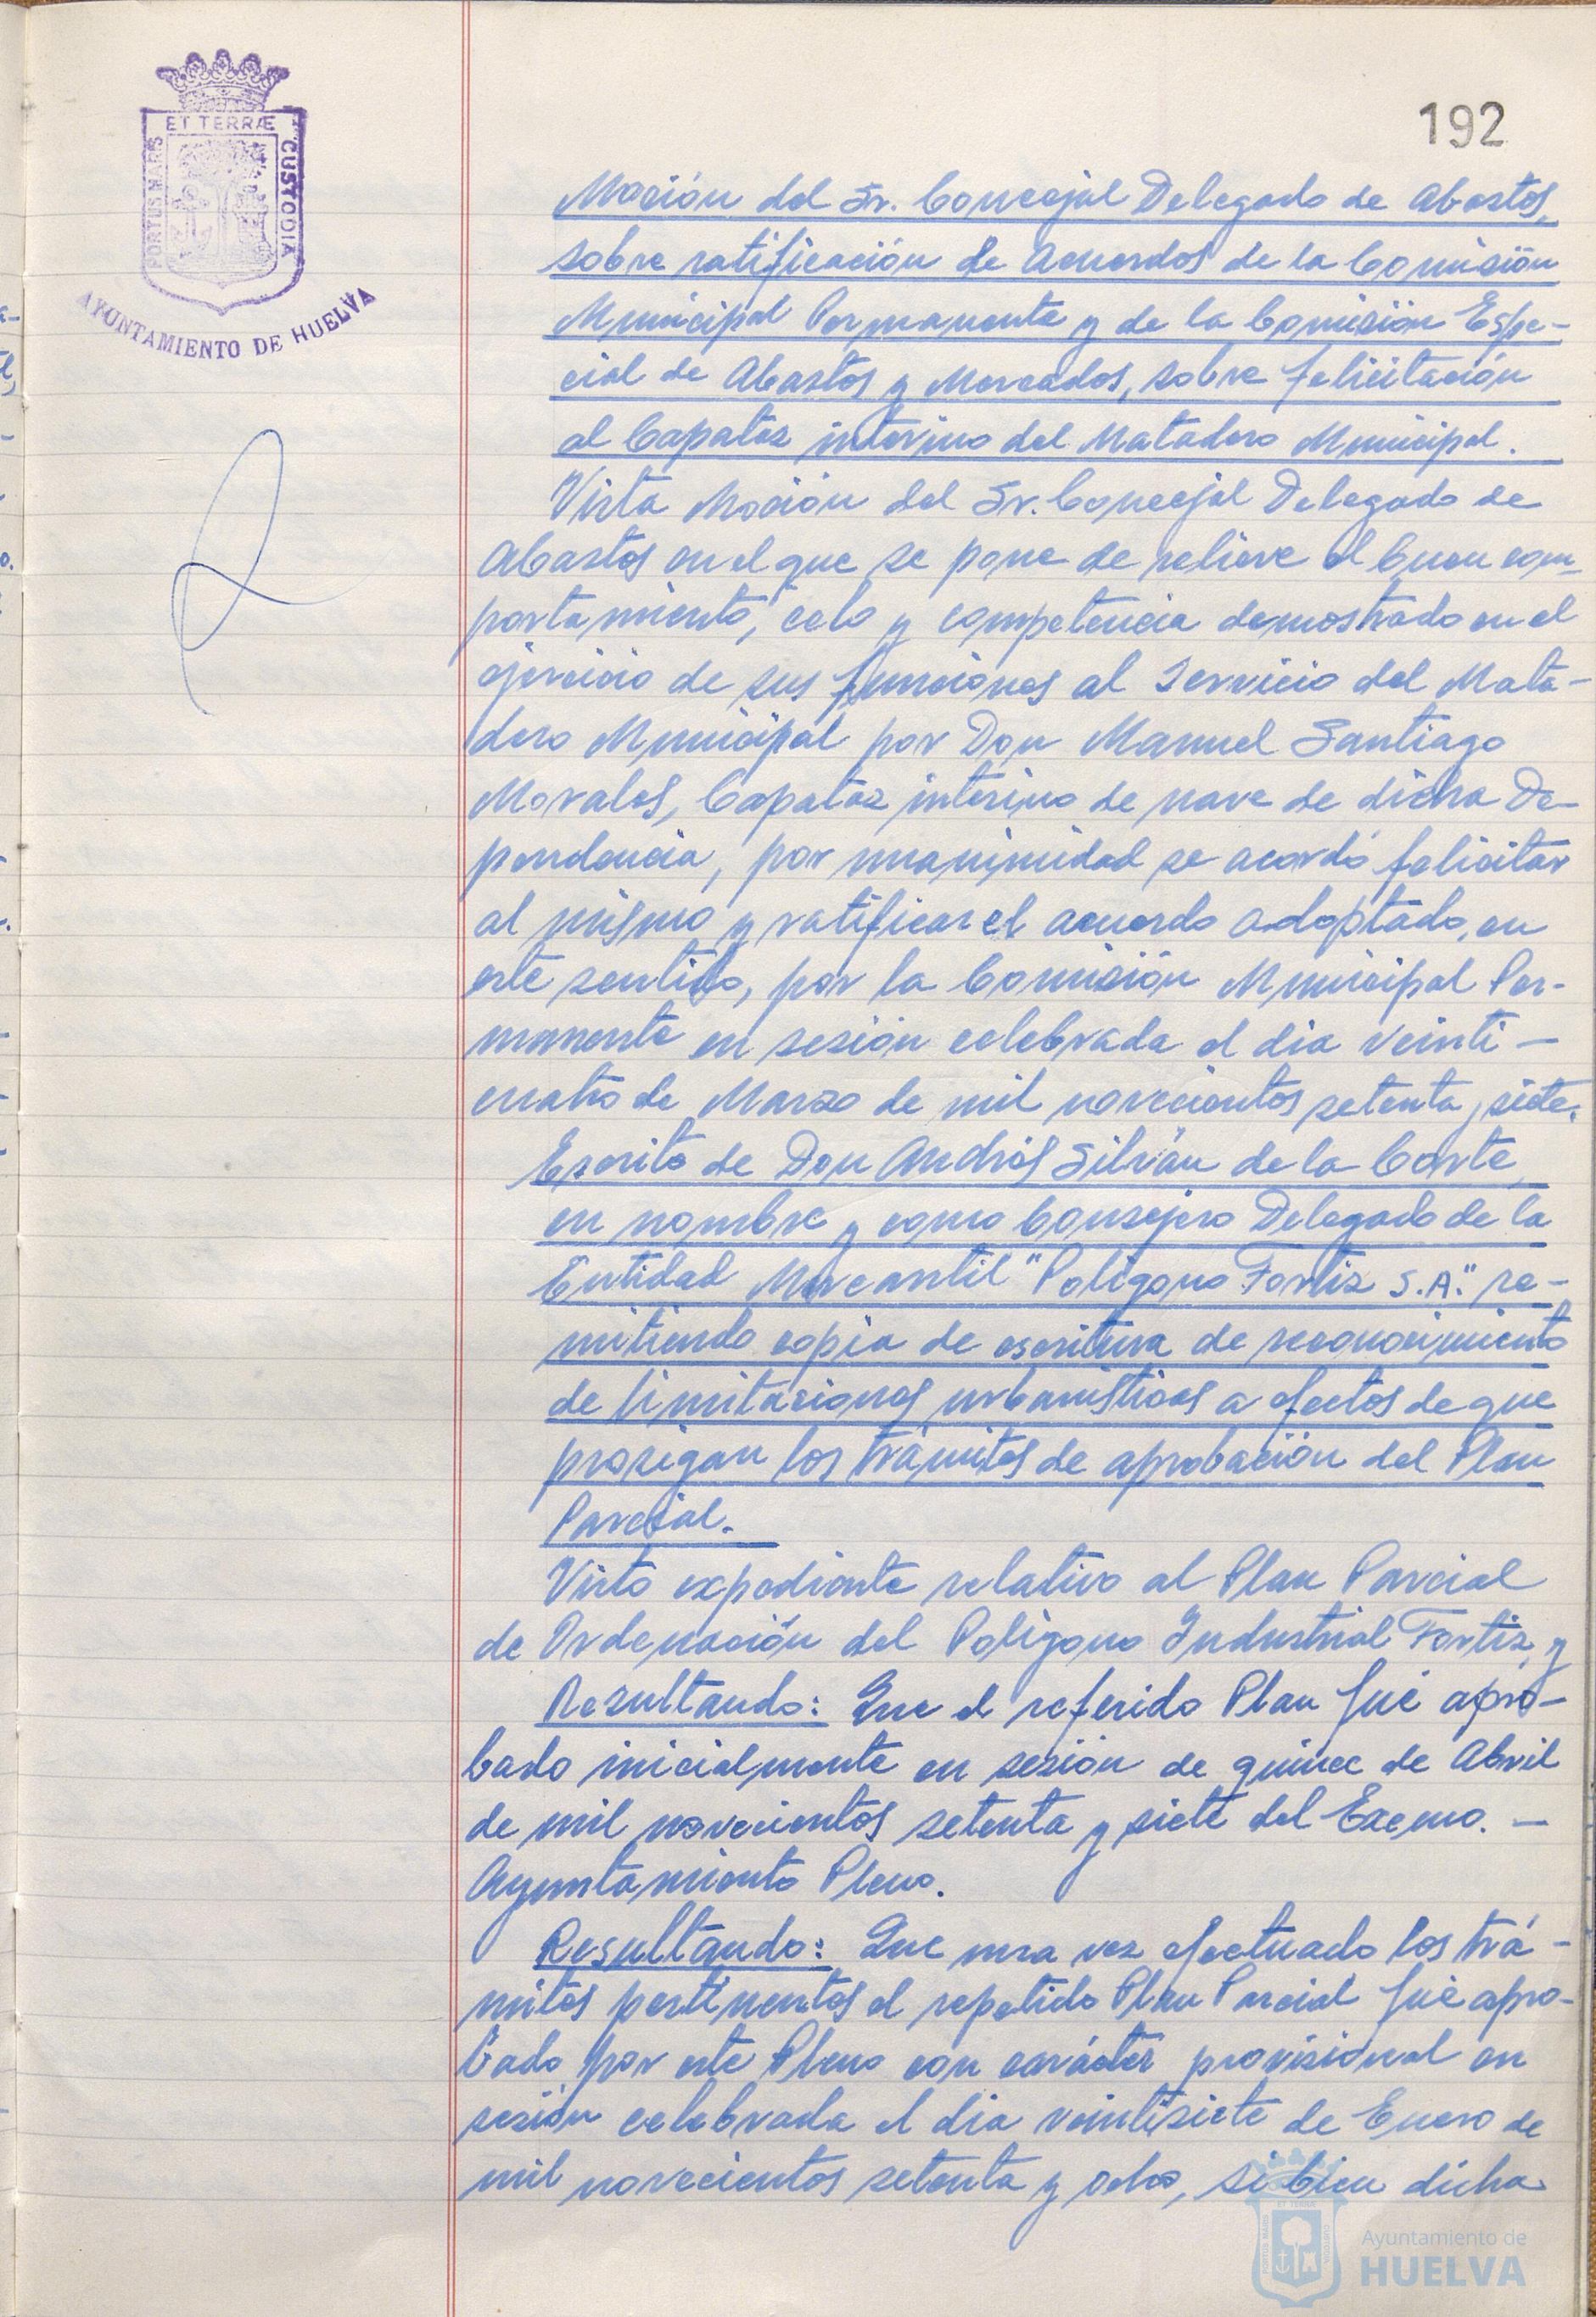 ET TERRÆ
PORTUS MARIS
CUSTODIA
AYUNTAMIENTO DE HUELVA
192
Moción del Sr. Concejal Delegado de Abastos,
sobre ratificación de Acuerdos de la Comisión
Municipal Permanente y de la Comisión Espe-
cial de Abastos y Mercados, sobre felicitación
al Capataz interino del Matadero Municipal.
Vista Moción del Sr. Concejal Delegado de
Abastos en el que se pone de relieve el buen com-
portamiento, celo y competencia demostrado en el
ejercicio de sus funciones al Servicio del Mata-
dero Municipal por Don Manuel Santiago
Morales, Capataz interino de nave de dicha De-
pendencia, por unanimidad se acordó felicitar
al mismo y ratificar el acuerdo adoptado, en
este sentido, por la Comisión Municipal Per-
manente en sesión celebrada el dia veinti-
cuatro de Marzo de mil novecientos setenta y siete.
Escrito de Don Andrés Silván de la Corte,
en nombre y como Consejero Delegado de la
Entidad Mercantil "Poligono Fortiz S.A." re-
mitiendo copia de escritura de reconocimiento
de limitaciones urbanisticas a efectos de que
prosigan los trámites de aprobación del Plan
Parcial.
Visto expediente relativo al Plan Parcial
de Ordenación del Poligono Industrial Fortiz, y
Resultando: Que el referido Plan fué apro-
bado inicialmente en sesión de quince de Abril
de mil novecientos setenta y siete del Excmo. -
Ayuntamiento Pleno.
Resultando: Que una vez efectuado los trá-
mites pertinentes el repetido Plan Parcial fué apro-
bado por este Pleno con carácter provisional en
sesión celebrada el dia veintisiete de Enero de
mil novecientos setenta y ocho, si bien dicha
Ayuntamiento de
HUELVA